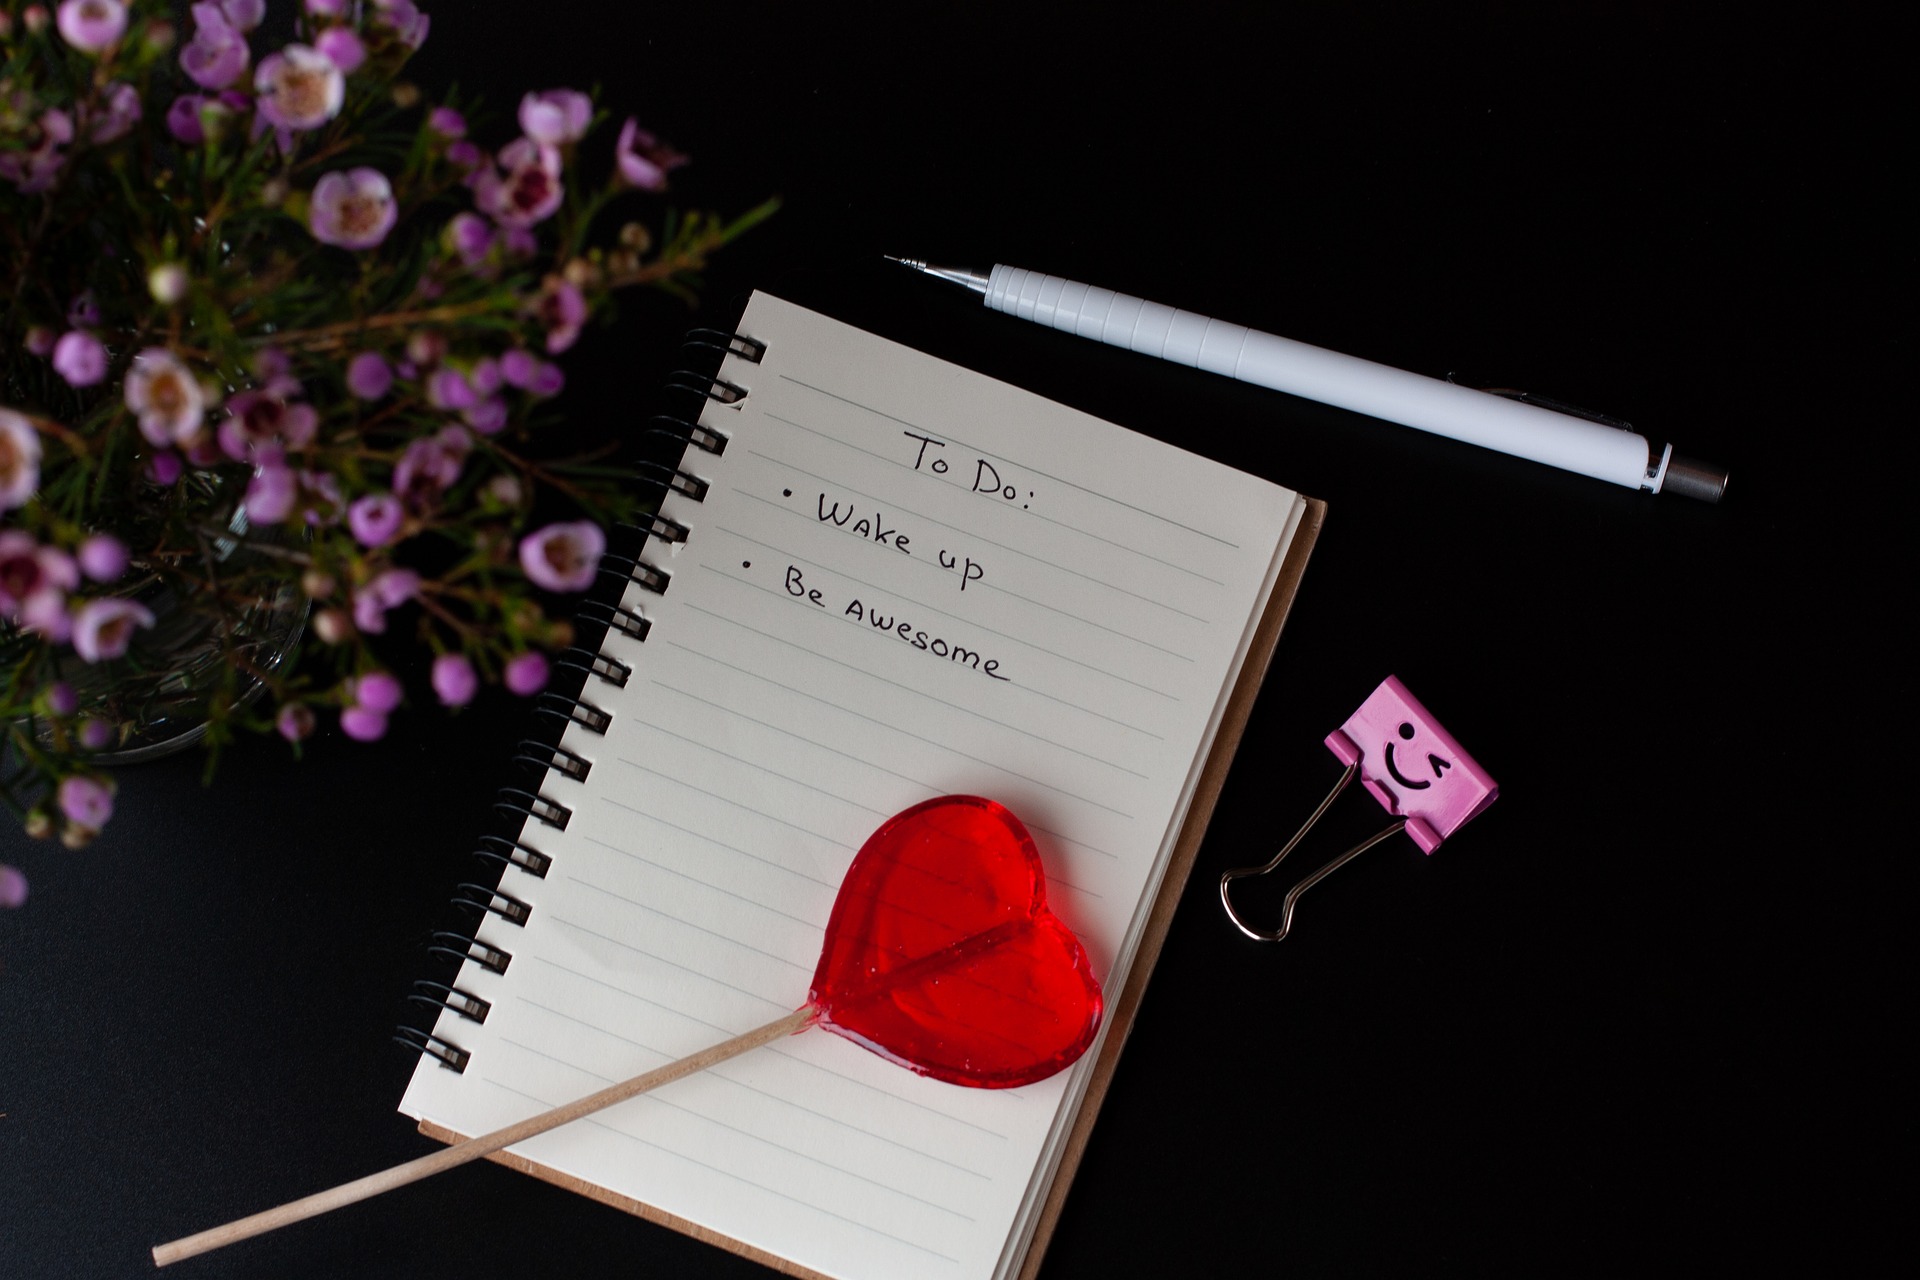 To Do:
• Wake up
• Be Awesome